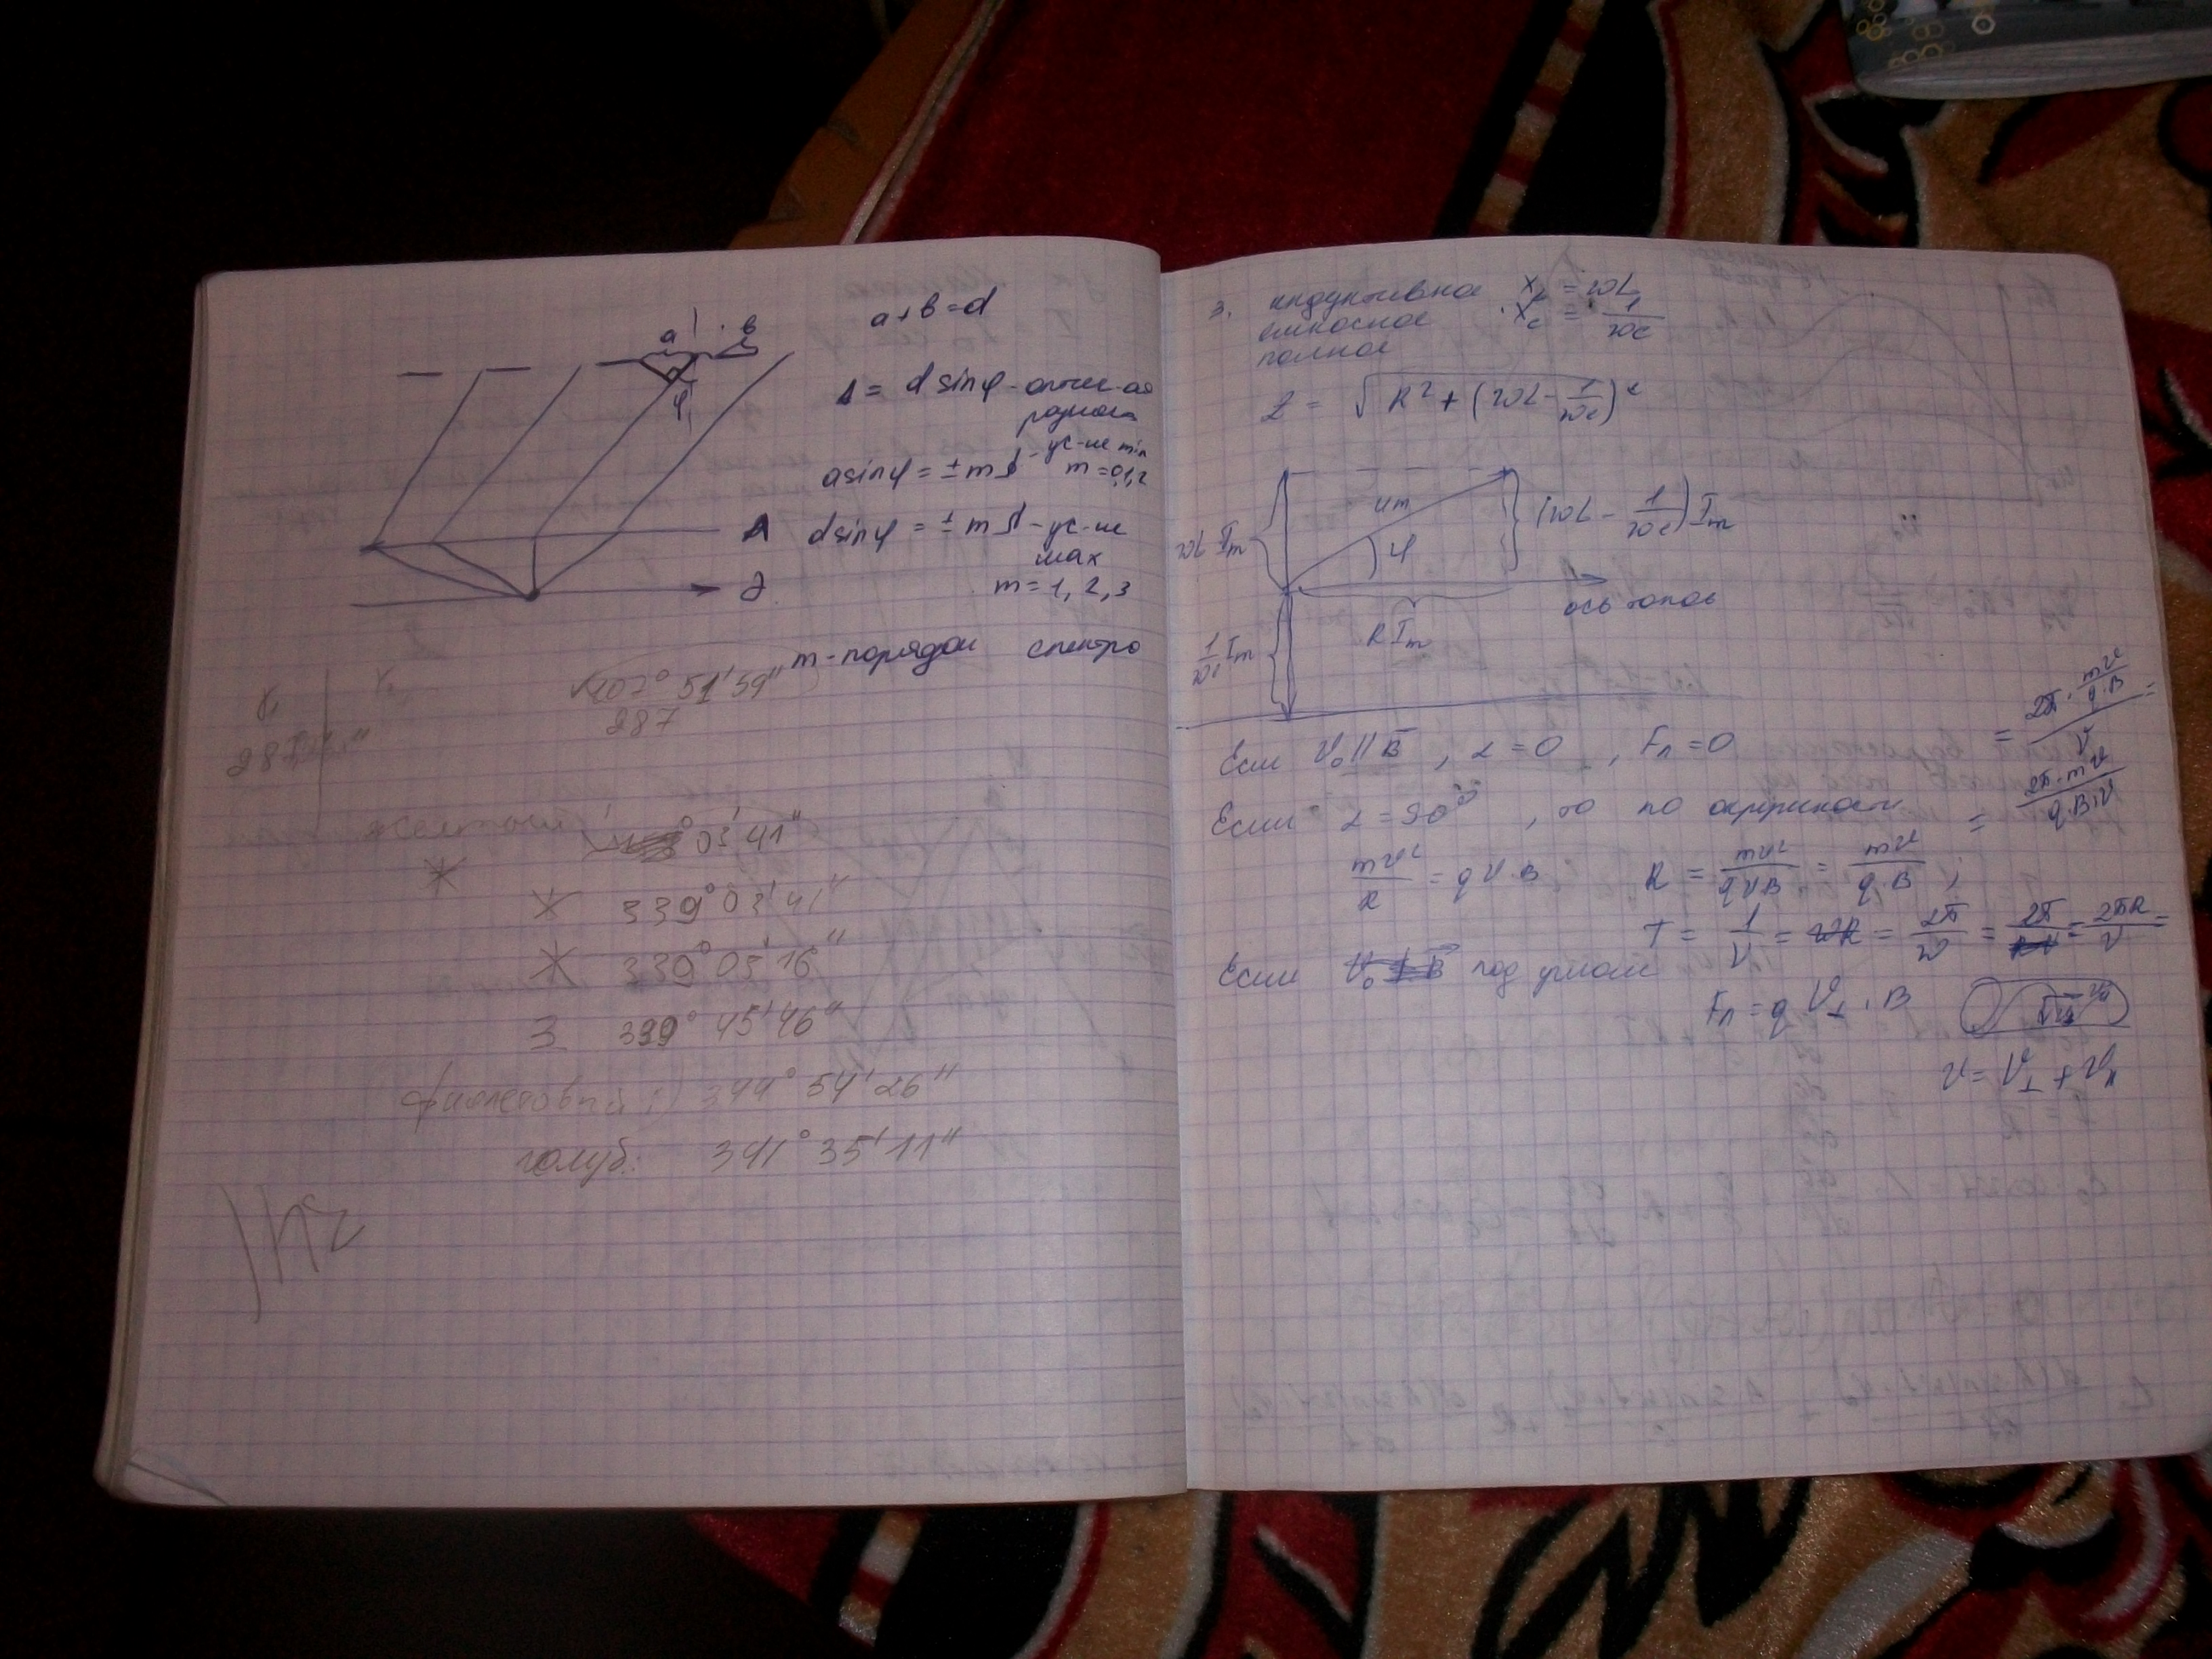 a b
a+b=d
φ
Δ = d sinφ - оптич-ая
разность
a sinφ = ± m λ - ус-ие min
m = 0,1,2
d sinφ = ± m λ - ус-ие
max
m = 1, 2, 3
m - порядок спектра
202° 51' 59"
287
желтый
03' 41"
339° 03' 41"
339° 05' 16"
З 339° 45' 46"
фиолетовый 1) 344° 54' 26"
голуб: 341° 35' 11"
3. индуктивное X_L = ωL
емкосное X_c = 1/ωc
полное
Z = √(R² + (ωL - 1/ωc)²)
ωL I_m
U_m
φ
(ωL - 1/ωc) I_m
ось токов
1/ωc I_m
R I_m
Если V₀ || B, α = 0, Fл = 0
= (2π · mv/(q·B))/v =
Если α = 90°, то по окружности
= (2π·mv)/(q·B·v)
mv²/R = qV·B R = mv²/qVB = mv/q·B ;
T = 1/ν = = 2π/ω = 2π = 2πR/v =
Если под углом
Fл = q V⊥ · B
v = V⊥ + V||